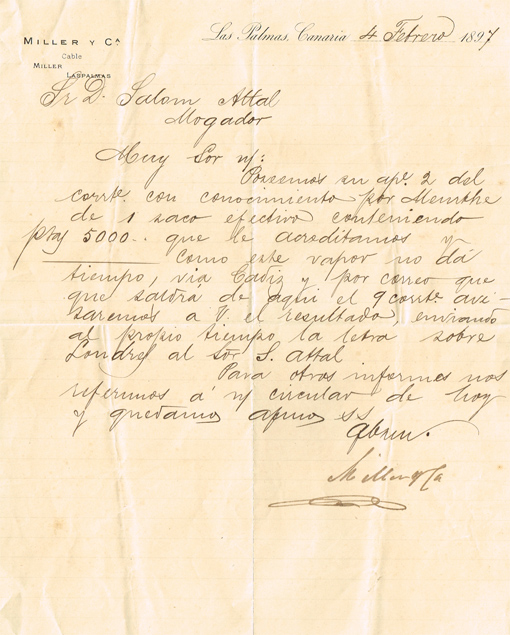 MILLER Y Cᴬ
Cable
MILLER
LASPALMAS
Las Palmas, Canaria 4 Febrero 1897
Sr D. Salom Attal
Mogador
Muy Sor n/:
Poseemos su apᵈᵃ 2 del
corrte. con conocimiento por Menthe
de 1 saco efectivo conteniendo
ptas 5000.. que le acreditamos
Como este vapor no dá
tiempo, via Cadiz y por correo que
que saldrá de aqui el 9 corrte avi-
saremos a V. el resultado, enviando
al propio tiempo la letra sobre
Londres al sor S. Attal
Para otros informes nos
referimos á n/ circular de hoy
y quedamos afmos ss
qbsm.
Miller y Ca